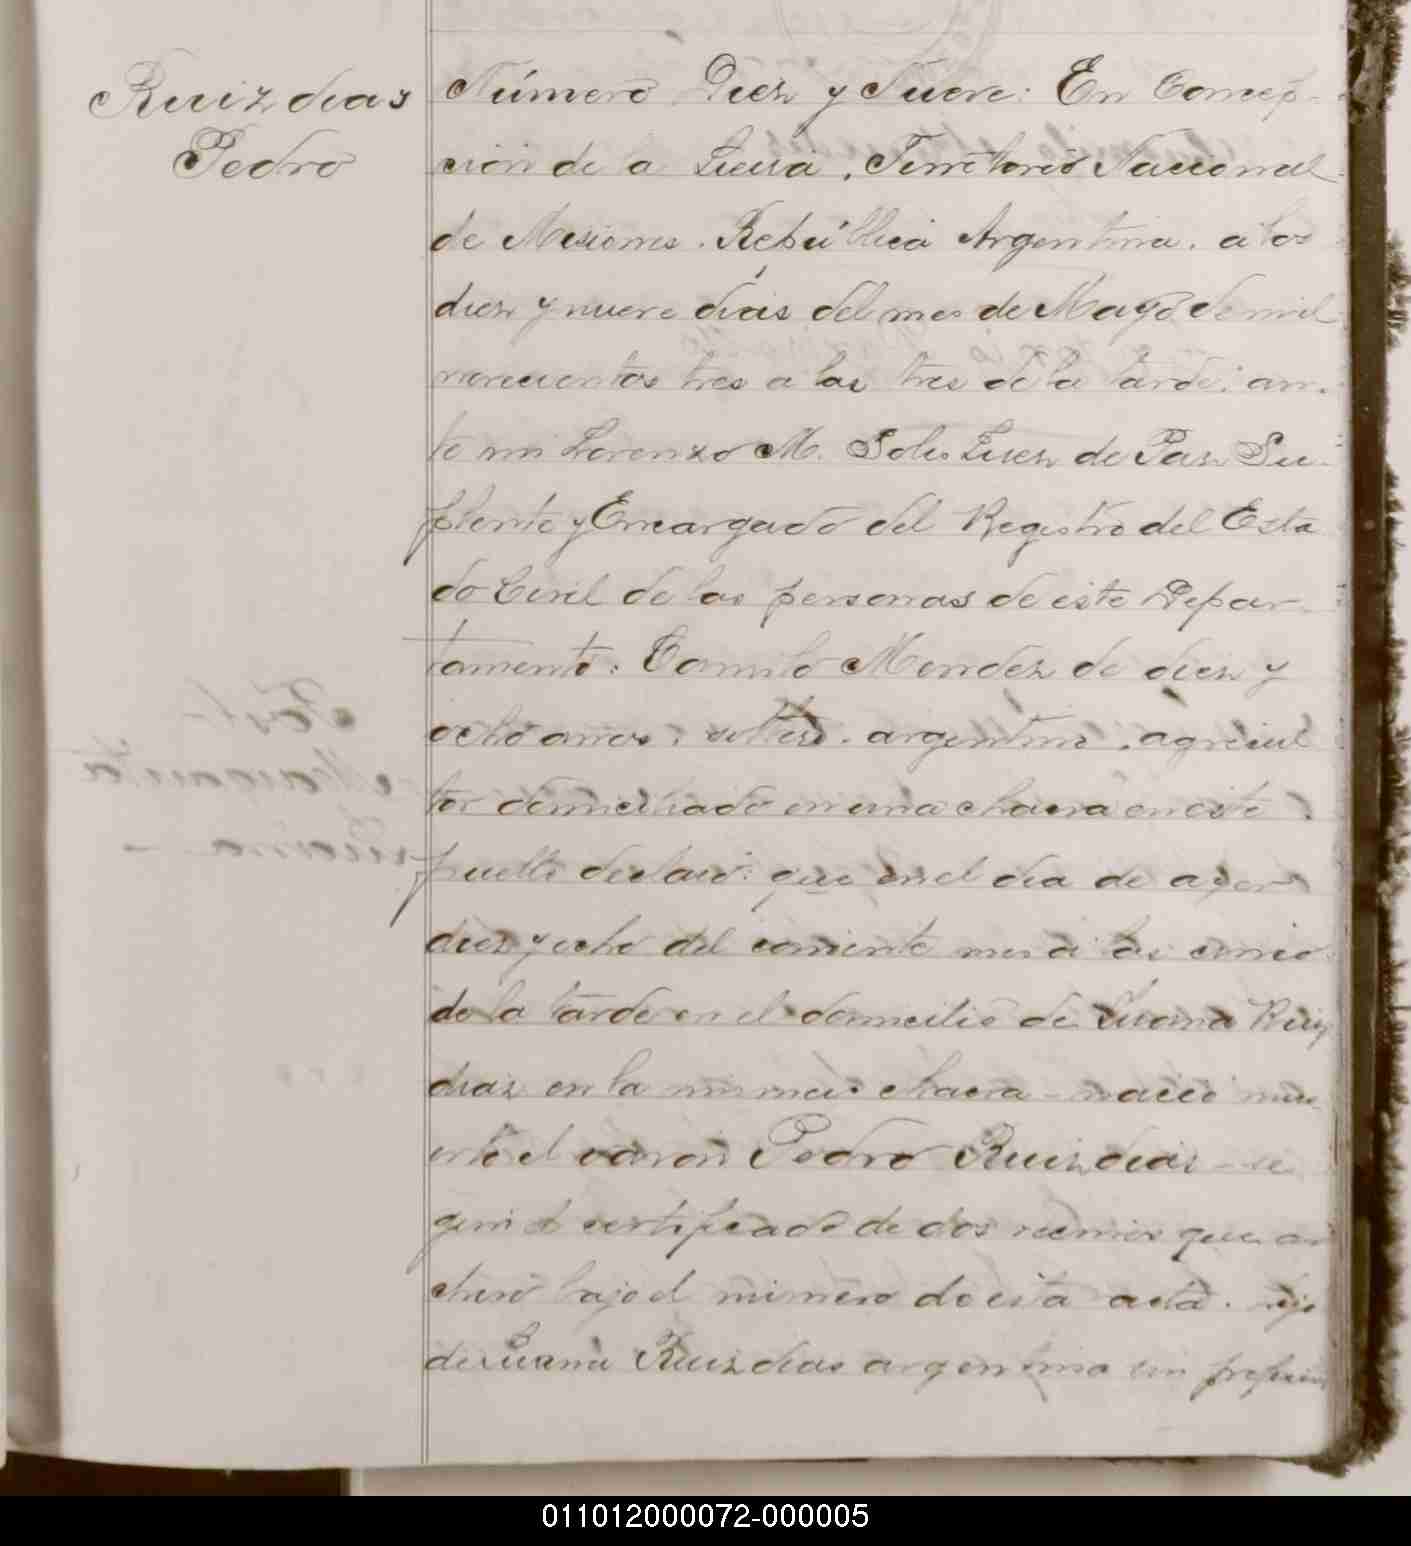 Ruiz dias
Pedro
Número Diez y Nueve: En Concep-
ción de la Sierra, Territorio Nacional
de Misiones, República Argentina, a los
diez y nueve días del mes de Mayo de mil
novecientos tres a las tres de la tarde: an-
te mi Lorenzo M. Solis Juez de Paz Su-
plente y Encargado del Registro del Esta
do Civil de las personas de este Depar-
tamento: Camilo Mendez de diez y
ocho años, soltero, argentino, agricul
tor domiciliado en una chacra en este
pueblo declaró: que en el día de ayer
diez y ocho del corriente mes a las cinco
de la tarde en el domicilio de Juana Ruiz
diaz en la misma chacra nació mu-
erto el varon Pedro Ruiz dias se
gun el certificado de dos vecinos que ar
chivo bajo el número de esta acta, hijo
de Juana Ruiz dias argentina sin profesion
011012000072-000005